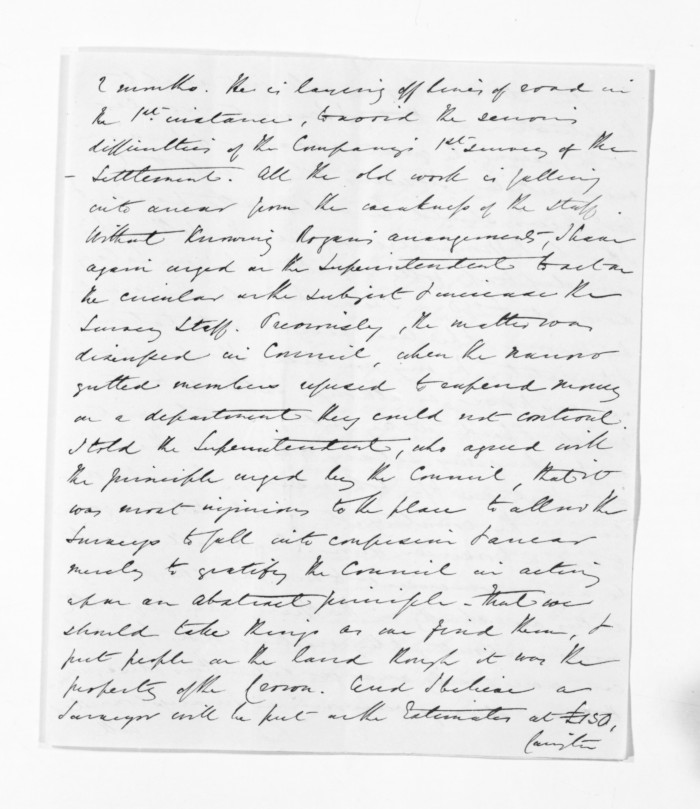 2 months. He is laying off lines of road in
the 1st. instance, to avoid the serious
difficulties of the Company's 1st. survey of the
- Settlement. All the old work is falling
into arrear from the weakness of the staff.
Without knowing Rogan's arrangements, I have
again urged on the Superintendent to act on
the circular on the subject & increase the
Survey Staff. Previously, the matter was
discussed in Council, when the narrow
gutted members refused to expend money
on a department they could not controul.
I told the Superintendent, who agreed with
the principle urged by the Council, that it
was most injurious to the place to allow the
Surveys to fall into confusion & arrear
merely to gratify the Council in acting
upon an abstract principle - that we
should take things as we find them, &
put people on the land though it was the
property of the Crown. And I believe a
Surveyor will be put on the Estimates at £150,